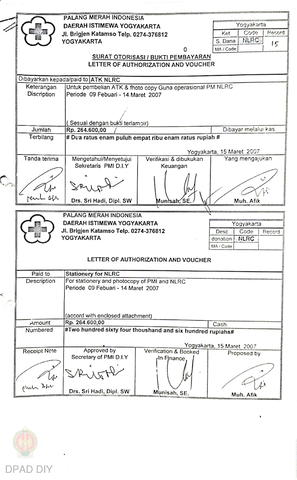 PALANG MERAH INDONESIA
DAERAH ISTIMEWA YOGYAKARTA
Jl. Brigjen Katamso Telp. 0274-376812
YOGYAKARTA
Yogyakarta
Kurs Code Record
S. Dana NLRC 15
MA / Code
0
SURAT OTORISASI / BUKTI PEMBAYARAN
LETTER OF AUTHORIZATION AND VOUCHER
Dibayarkan kepada/paid to ATK NLRC
Keterangan Untuk pembelian ATK & photo copy Guna operasional PM NLRC
Discription Periode 09 Febuari - 14 Maret 2007
( Sesuai dengan bukti terlampir)
Jumlah Rp. 264.600,00 / Dibayar melalui kas
Terbilang # Dua ratus enam puluh empat ribu enam ratus rupiah #
Yogyakarta, 15 Maret 2007
Tanda terima Mengetahui/Menyetujui Verifikasi & dibukukan Yang mengajukan
Sekretaris PMI D.I.Y Keuangan
Drs. Sri Hadi, Dipl. SW Munisah, SE. Muh. Afik
PALANG MERAH INDONESIA
DAERAH ISTIMEWA YOGYAKARTA
Jl. Brigjen Katamso Telp. 0274-376812
YOGYAKARTA
Yogyakarta
Desc Code Record
donation NLRC
MA / Code
LETTER OF AUTHORIZATION AND VOUCHER
Paid to Stationery for NLRC
Description For stationery and photocopy of PMI and NLRC
Periode 09 Febuari - 14 Maret 2007
(accord with enclosed attachment)
Amount Rp 264.600,00 Cash
Numbered #Two hundred sixty four thousand and six hundred rupiahs#
Yogyakarta, 15 Maret 2007
Receipt Note Approved by Verification & Booked Proposed by
Secretary of PMI D.I.Y In Finance
Drs. Sri Hadi, Dipl. SW Munisah, SE. Muh. Afik
DPAD DIY